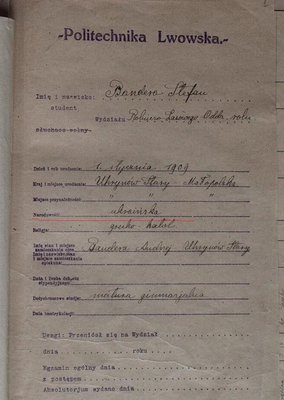 -Politechnika Lwowska.-
Imię i nazwisko: Bandera Stefan
student
Wydziału Rolniczo Lasowego Oddz. roln.
słuchacz wolny
Dzień i rok urodzenia: 1. stycznia 1909
Kraj i miejsce urodzenia: Uhrynów Stary Małopolska
Miejsce przynależności: " " "
Narodowość: ukraińska
Religja: grecko-katol.
Imię stan i miejsce
zamieszkania ojca Bandera Andrij Uhrynów Stary
Imię nazwisko stan
i miejsce zamieszkania
opiekuna:
Data i liczba dekretu
stypendyjnego:
Dotychczasowe studja: matura gimnazjalna
Data imatrykulacji:
Uwagi: Przeniósł się na Wydział
dnia roku
Egzamin ogólny dnia
z postępem
Absolutorjum wydano dnia